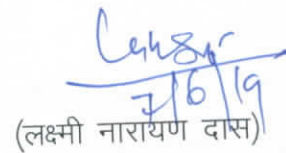 7/6/19
(लक्ष्मी नारायण दास)